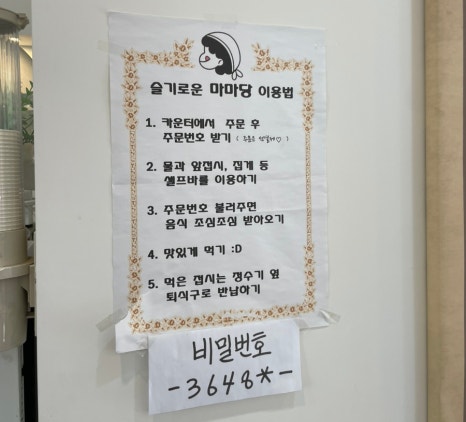 슬기로운 마마당 이용법
1. 카운터에서 주문 후
주문번호 받기
2. 물과 앞접시, 집게 등
셀프바를 이용하기
3. 주문번호 불러주면
음식 조심조심 받아오기
4. 맛있게 먹기 :D
5. 먹은 접시는 정수기 옆
퇴식구로 반납하기
비밀번호
-3648*-